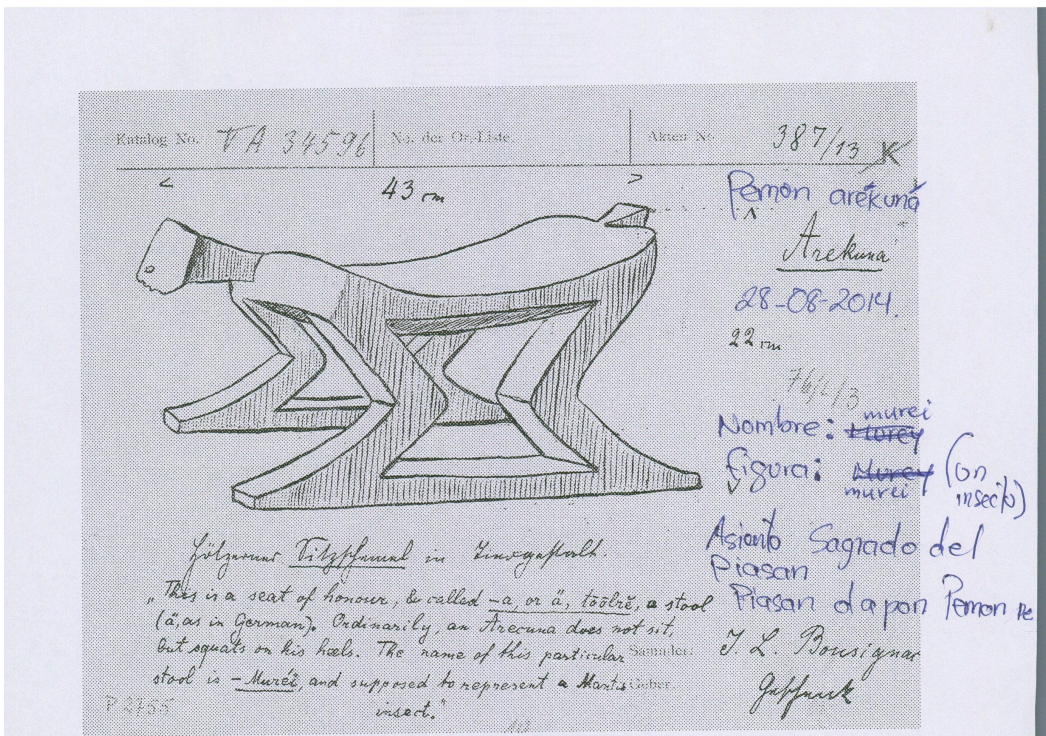 Katalog No. VA 34596 No. der Or.-Liste. Akten No. 387/13 K
< 43 cm >
Pemon arekuná
"Arekuna"
28-08-2014.
22 cm
Nombre: murei Morey
figura: Murey murei (un insecto)
Asiento Sagrado del
Piasan
Piasan dapon Pemon pe
Hölzerner Sitzschemel in Tiergestalt.
„This is a seat of honour, & called -a, or ä, töölrĕ, a stool
(ä, as in German). Ordinarily, an Arecuna does not sit,
but squats on his heels. The name of this particular
stool is - Mureĭ, and supposed to represent a Mantis
insect."
Sammler: J. L. Bonsignac
Geber: Geschenk
P 2755